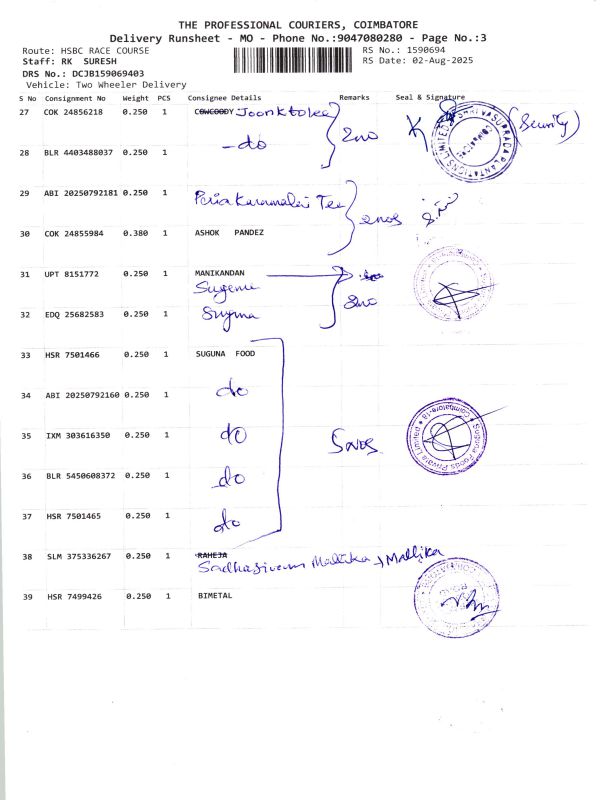 THE PROFESSIONAL COURIERS, COIMBATORE
Delivery Runsheet - MO - Phone No.:9047080280 - Page No.:3
Route: HSBC RACE COURSE RS No.: 1590694
Staff: RK SURESH RS Date: 02-Aug-2025
DRS No.: DCJB159069403
Vehicle: Two Wheeler Delivery
S No Consignment No Weight PCS Consignee Details Remarks Seal & Signature
27 COK 24856218 0.250 1 COWCOODY Joonktolee 2no (Security)
28 BLR 4403488037 0.250 1 do
29 ABI 20250792181 0.250 1 Peria Karamalai Tee 2nos
30 COK 24855984 0.380 1 ASHOK PANDEZ
31 UPT 8151772 0.250 1 MANIKANDAN
Suguna 2no
32 EDQ 25682583 0.250 1 Suguna
33 HSR 7501466 0.250 1 SUGUNA FOOD
34 ABI 20250792160 0.250 1 do
35 IXM 303616350 0.250 1 do 5nos
36 BLR 5450608372 0.250 1 do
37 HSR 7501465 0.250 1 do
38 SLM 375336267 0.250 1 RAHEJA
Sadhasivam Mallika Mallika
39 HSR 7499426 0.250 1 BIMETAL